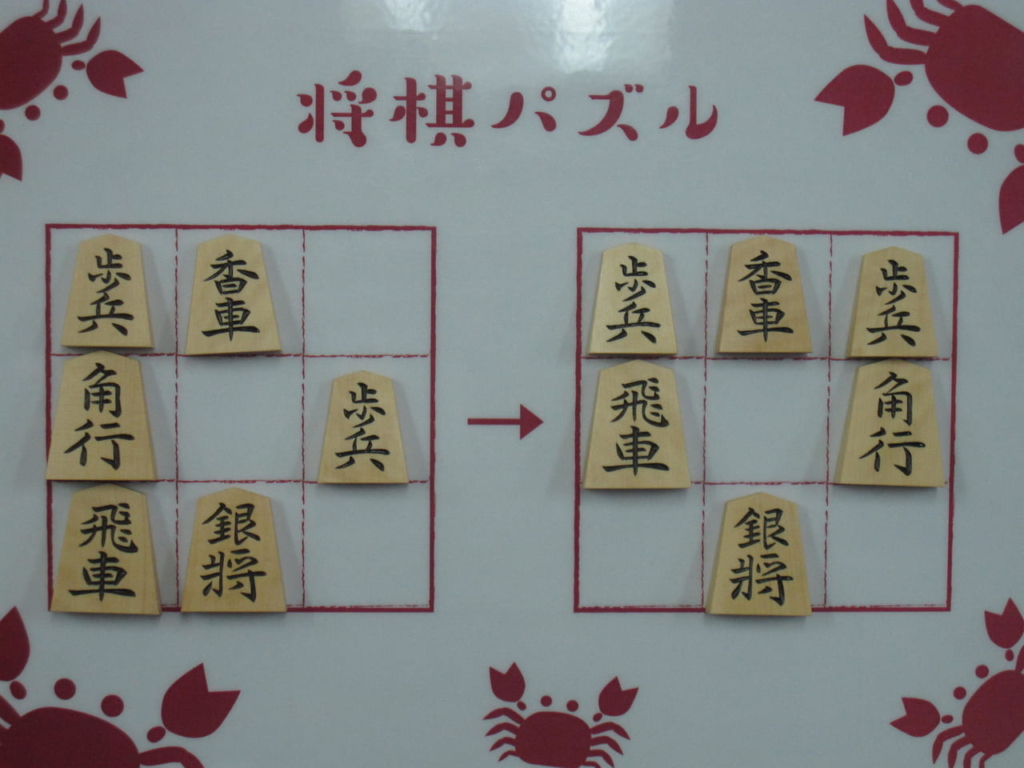 将棋パズル
歩兵 香車
角行 歩兵
飛車 銀将
歩兵 香車 歩兵
飛車 角行
銀将